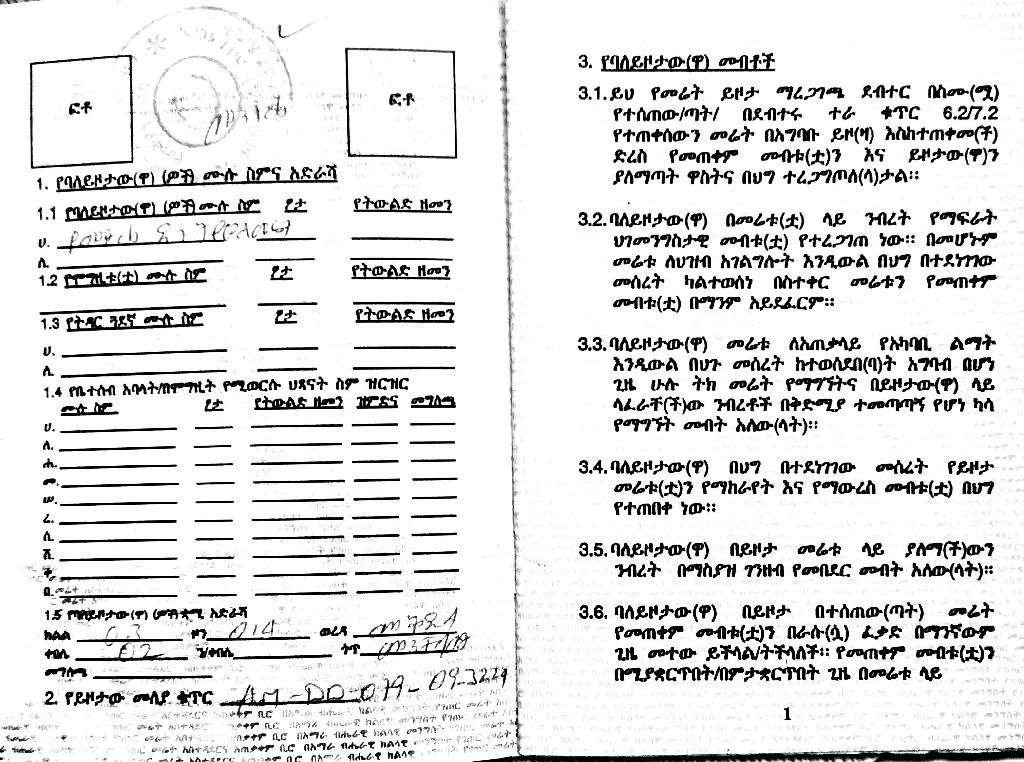 ፎቶ
ፎቶ
1. የባለይዞታው(ዋ) (ዎች) ሙሉ ስምና አድራሻ
1.1 የባለይዞታው(ዋ) (ዎች) ሙሉ ስም ፆታ የትውልድ ዘመን
ሀ.
ለ.
1.2 የሞግዚቱ(ቷ) ሙሉ ስም ፆታ የትውልድ ዘመን
1.3 የትዳር ጓደኛ ሙሉ ስም ፆታ የትውልድ ዘመን
ሀ.
ለ.
1.4 የቤተሰብ አባላት/በሞግዚት የሚወርሱ ህጻናት ስም ዝርዝር
ሙሉ ስም ፆታ የትውልድ ዘመን ዝምድና መግለጫ
ሀ.
ለ.
ሐ.
መ.
ሠ.
ረ.
ሰ.
ሸ.
ቀ.
በ.
1.5 የባለይዞታው(ዋ) (ዎች) ቋሚ አድራሻ
ክልል 03 ዞን 014 ወረዳ
ቀበሌ 02 ን/ቀበሌ ጎጥ
መግለጫ
2. የይዞታው መለያ ቁጥር AM-DD-079-09-3229
3. የባለይዞታው(ዋ) መብቶች
3.1. ይህ የመሬት ይዞታ ማረጋገጫ ደብተር በስሙ(ሟ)
የተሰጠው/ጣት/ በደብተሩ ተራ ቁጥር 6.2/7.2
የተጠቀሰውን መሬት በአግባቡ ይዞ(ዛ) እስከተጠቀመ(ች)
ድረስ የመጠቀም መብቱ(ቷ)ን እና ይዞታው(ዋ)ን
ያለማጣት ዋስትና በህግ ተረጋግጦለ(ላ)ታል።
3.2. ባለይዞታው(ዋ) በመሬቱ(ቷ) ላይ ንብረት የማፍራት
ህገመንግስታዊ መብቱ(ቷ) የተረጋገጠ ነው። በመሆኑም
መሬቱ ለህዝብ አገልግሎት እንዲውል በህግ በተደነገገው
መሰረት ካልተወሰነ በስተቀር መሬቱን የመጠቀም
መብቱ(ቷ) በማንም አይደፈርም።
3.3. ባለይዞታው(ዋ) መሬቱ ለአጠቃላይ የአካባቢ ልማት
እንዲውል በህጉ መሰረት ከተወሰደበ(ባ)ት አግባብ በሆነ
ጊዜ ሁሉ ትክ መሬት የማግኘትና በይዞታው(ዋ) ላይ
ላፈራቸ(ች)ው ንብረቶች በቅድሚያ ተመጣጣኝ የሆነ ካሳ
የማግኘት መብት አለው(ላት)።
3.4. ባለይዞታው(ዋ) በህግ በተደነገገው መሰረት የይዞታ
መሬቱ(ቷ)ን የማከራየት እና የማውረስ መብቱ(ቷ) በህግ
የተጠበቀ ነው።
3.5. ባለይዞታው(ዋ) በይዞታ መሬቱ ላይ ያለማ(ች)ውን
ንብረት በማስያዝ ገንዘብ የመበደር መብት አለው(ላት)።
3.6. ባለይዞታው(ዋ) በይዞታ በተሰጠው(ጣት) መሬት
የመጠቀም መብቱ(ቷ)ን በራሱ(ሷ) ፈቃድ በማንኛውም
ጊዜ መተው ይችላል/ትችላለች። የመጠቀም መብቱ(ቷ)ን
በሚያቋርጥበት/በምታቋርጥበት ጊዜ በመሬቱ ላይ
1